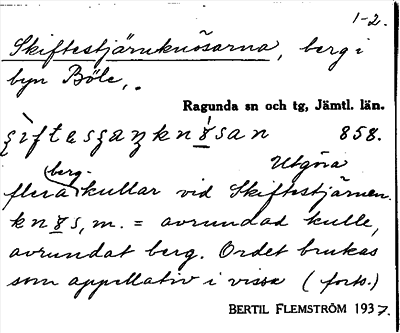 1-2.
Skiftestjärnknösarna, berg i
byn Böle,.
Ragunda sn och tg, Jämtl. län.
858.
Utgöra
berg-
flera kullar vid Skiftestjärnen.
m. = avrundad kulle,
avrundat berg. Ordet brukas
som appellativ i vissa (forts.)
BERTIL FLEMSTRÖM 1937.